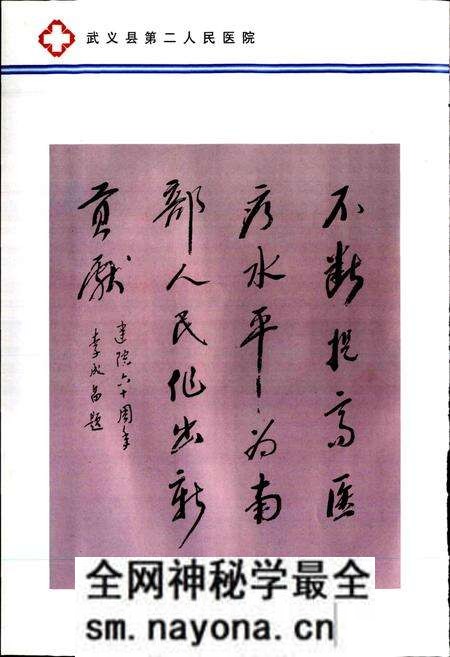 武义县第二人民医院
不断提高医
疗水平,为南
部人民作出新
贡献
建院六十周年
李成昌题
全网神秘学最全
sm.nayona.cn